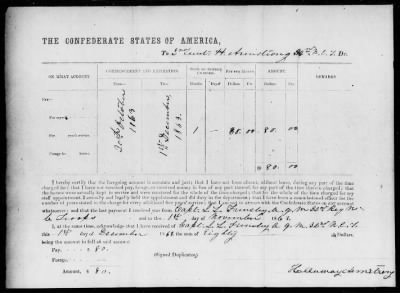 THE CONFEDERATE STATES OF AMERICA,
To 2nd Lieut H. Armstrong N.C.T. Dr.
ON WHAT ACCOUNT COMMENCEMENT AND EXPIRATION TERM OF SERVICE CHARGED PAY PER MONTH AMOUNT REMARKS
From— To— Months Days Dollars Cts. Dollars Cts.
PAY—
For myself
30 October 1863
1st December 1863.
1 – 80. 00 80. 00
$ 80. 00
I hereby certify that the foregoing account is accurate and just; that I have not been absent, without leave, during any part of the time
charged for; that I have not received pay, forage or received money in lieu of any part thereof for any part of the time therein charged; that
the horses were actually kept in service and were mustered for the whole of the time charged; that for the whole of the time charged for my
staff appointment, I actually and legally held the appointment and did duty in the department; that I have been a commissioned officer for the
number of years stated in the charge for every additional five years' service; that I am not in arrears with the Confederate States on any account
whatsoever; and that the last payment I received was from Capt. A. Q. M. Reg
Troops and to the 1st day of November 186
I, at the same time, acknowledge that I have received of Capt. A. Q. M. N.C.T.
this 1st day of December 1863 the sum of Eighty Dollars,
being the amount in full of said account.
Pay, $ 80.
Forage,
(Signed Duplicates)
Amount, $ 80.
Holloway Armstrong